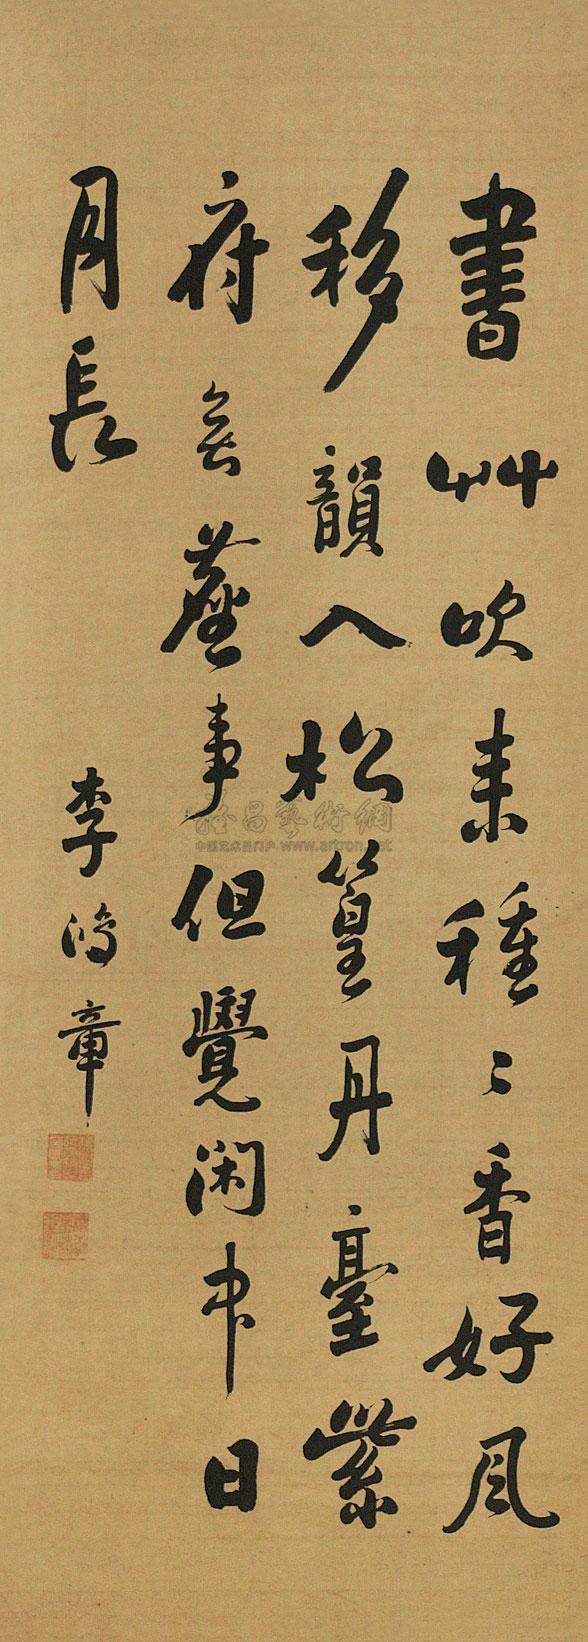 書艸吹来種〻香好風
移韻入松篁丹臺紫
府無塵事但覺閑中日
月長
李鴻章
雅昌藝術網
中国艺术品门户 www.artron.net